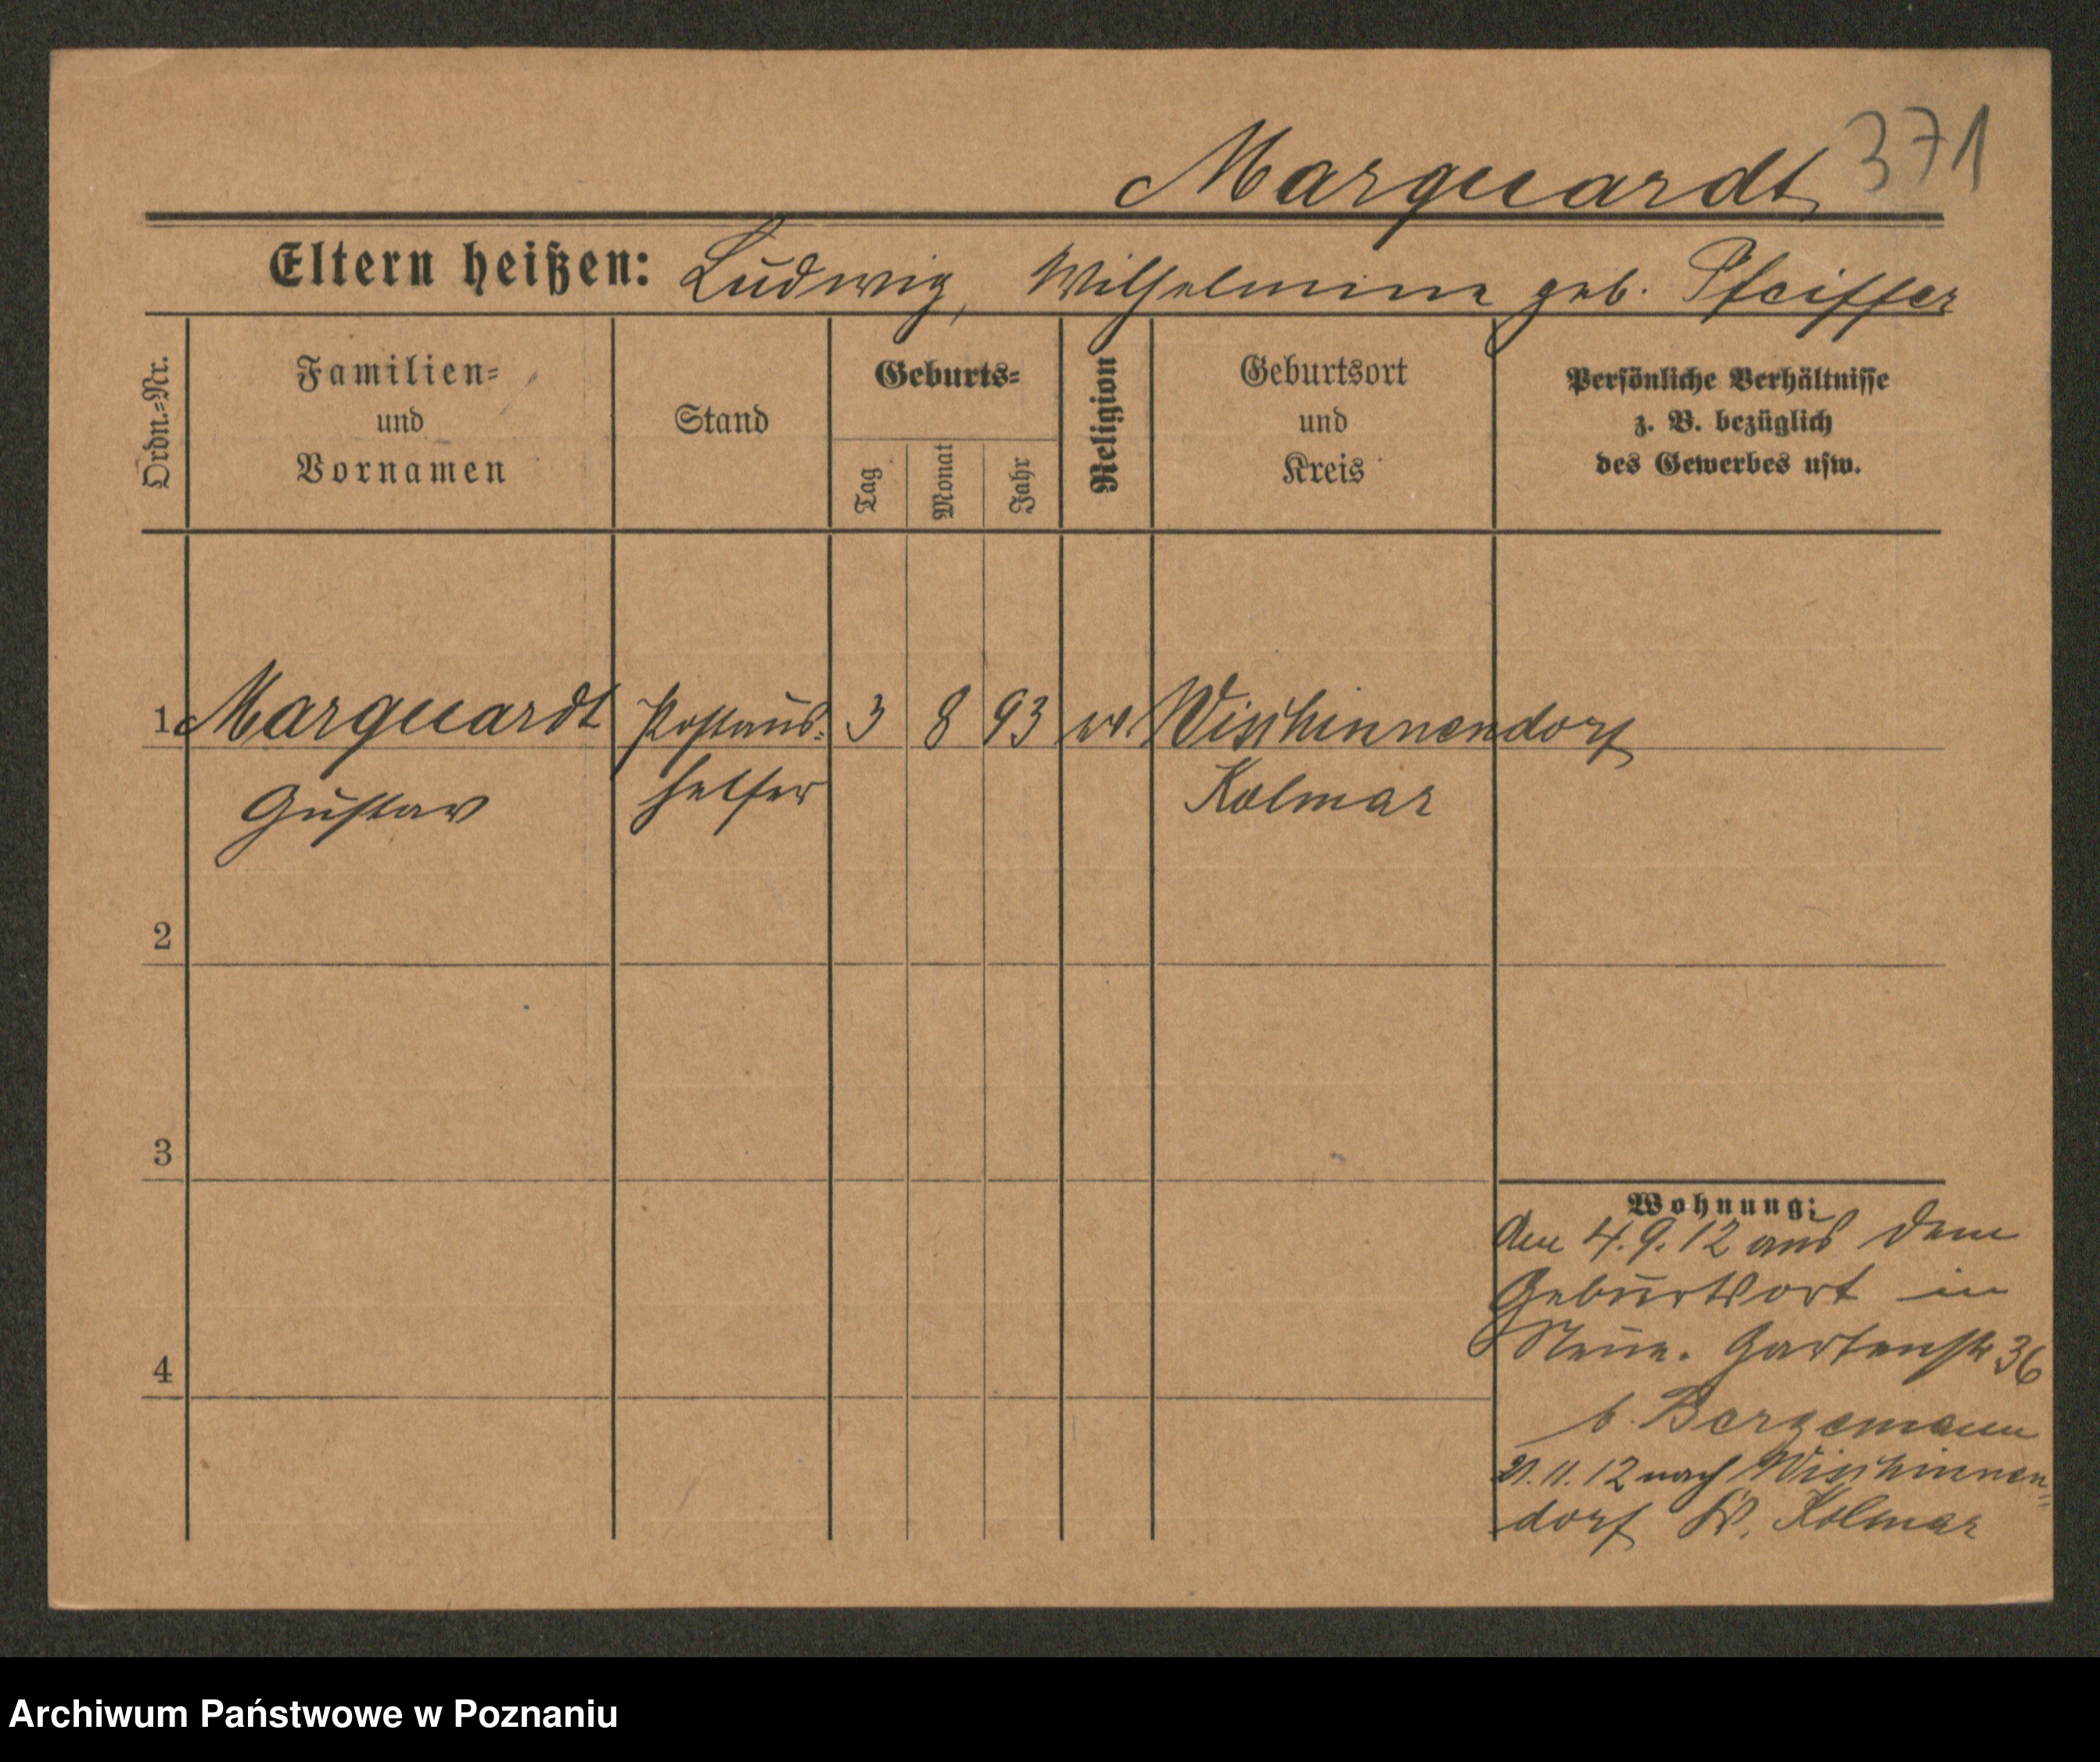 Marquardt 371
Eltern heißen: Ludwig, Wilhelmine geb. Pfeiffer
Ordn.-Nr.
Familien- und Vornamen
Stand
Geburts-
Tag
Monat
Jahr
Religion
Geburtsort und Kreis
Persönliche Verhältnisse
z. B. bezüglich
des Gewerbes usw.
1 Marquardt Postaus- 3 8 93 ev. Wischinnendorf
Gustav helfer Kolmar
2
3
4
Wohnung:
Am 4.9.12 aus dem
Geburtsort in
Gartenstr 36
b. Bergemann
21.11.12 nach Wischinnen-
dorf Kr. Kolmar
Archiwum Państwowe w Poznaniu